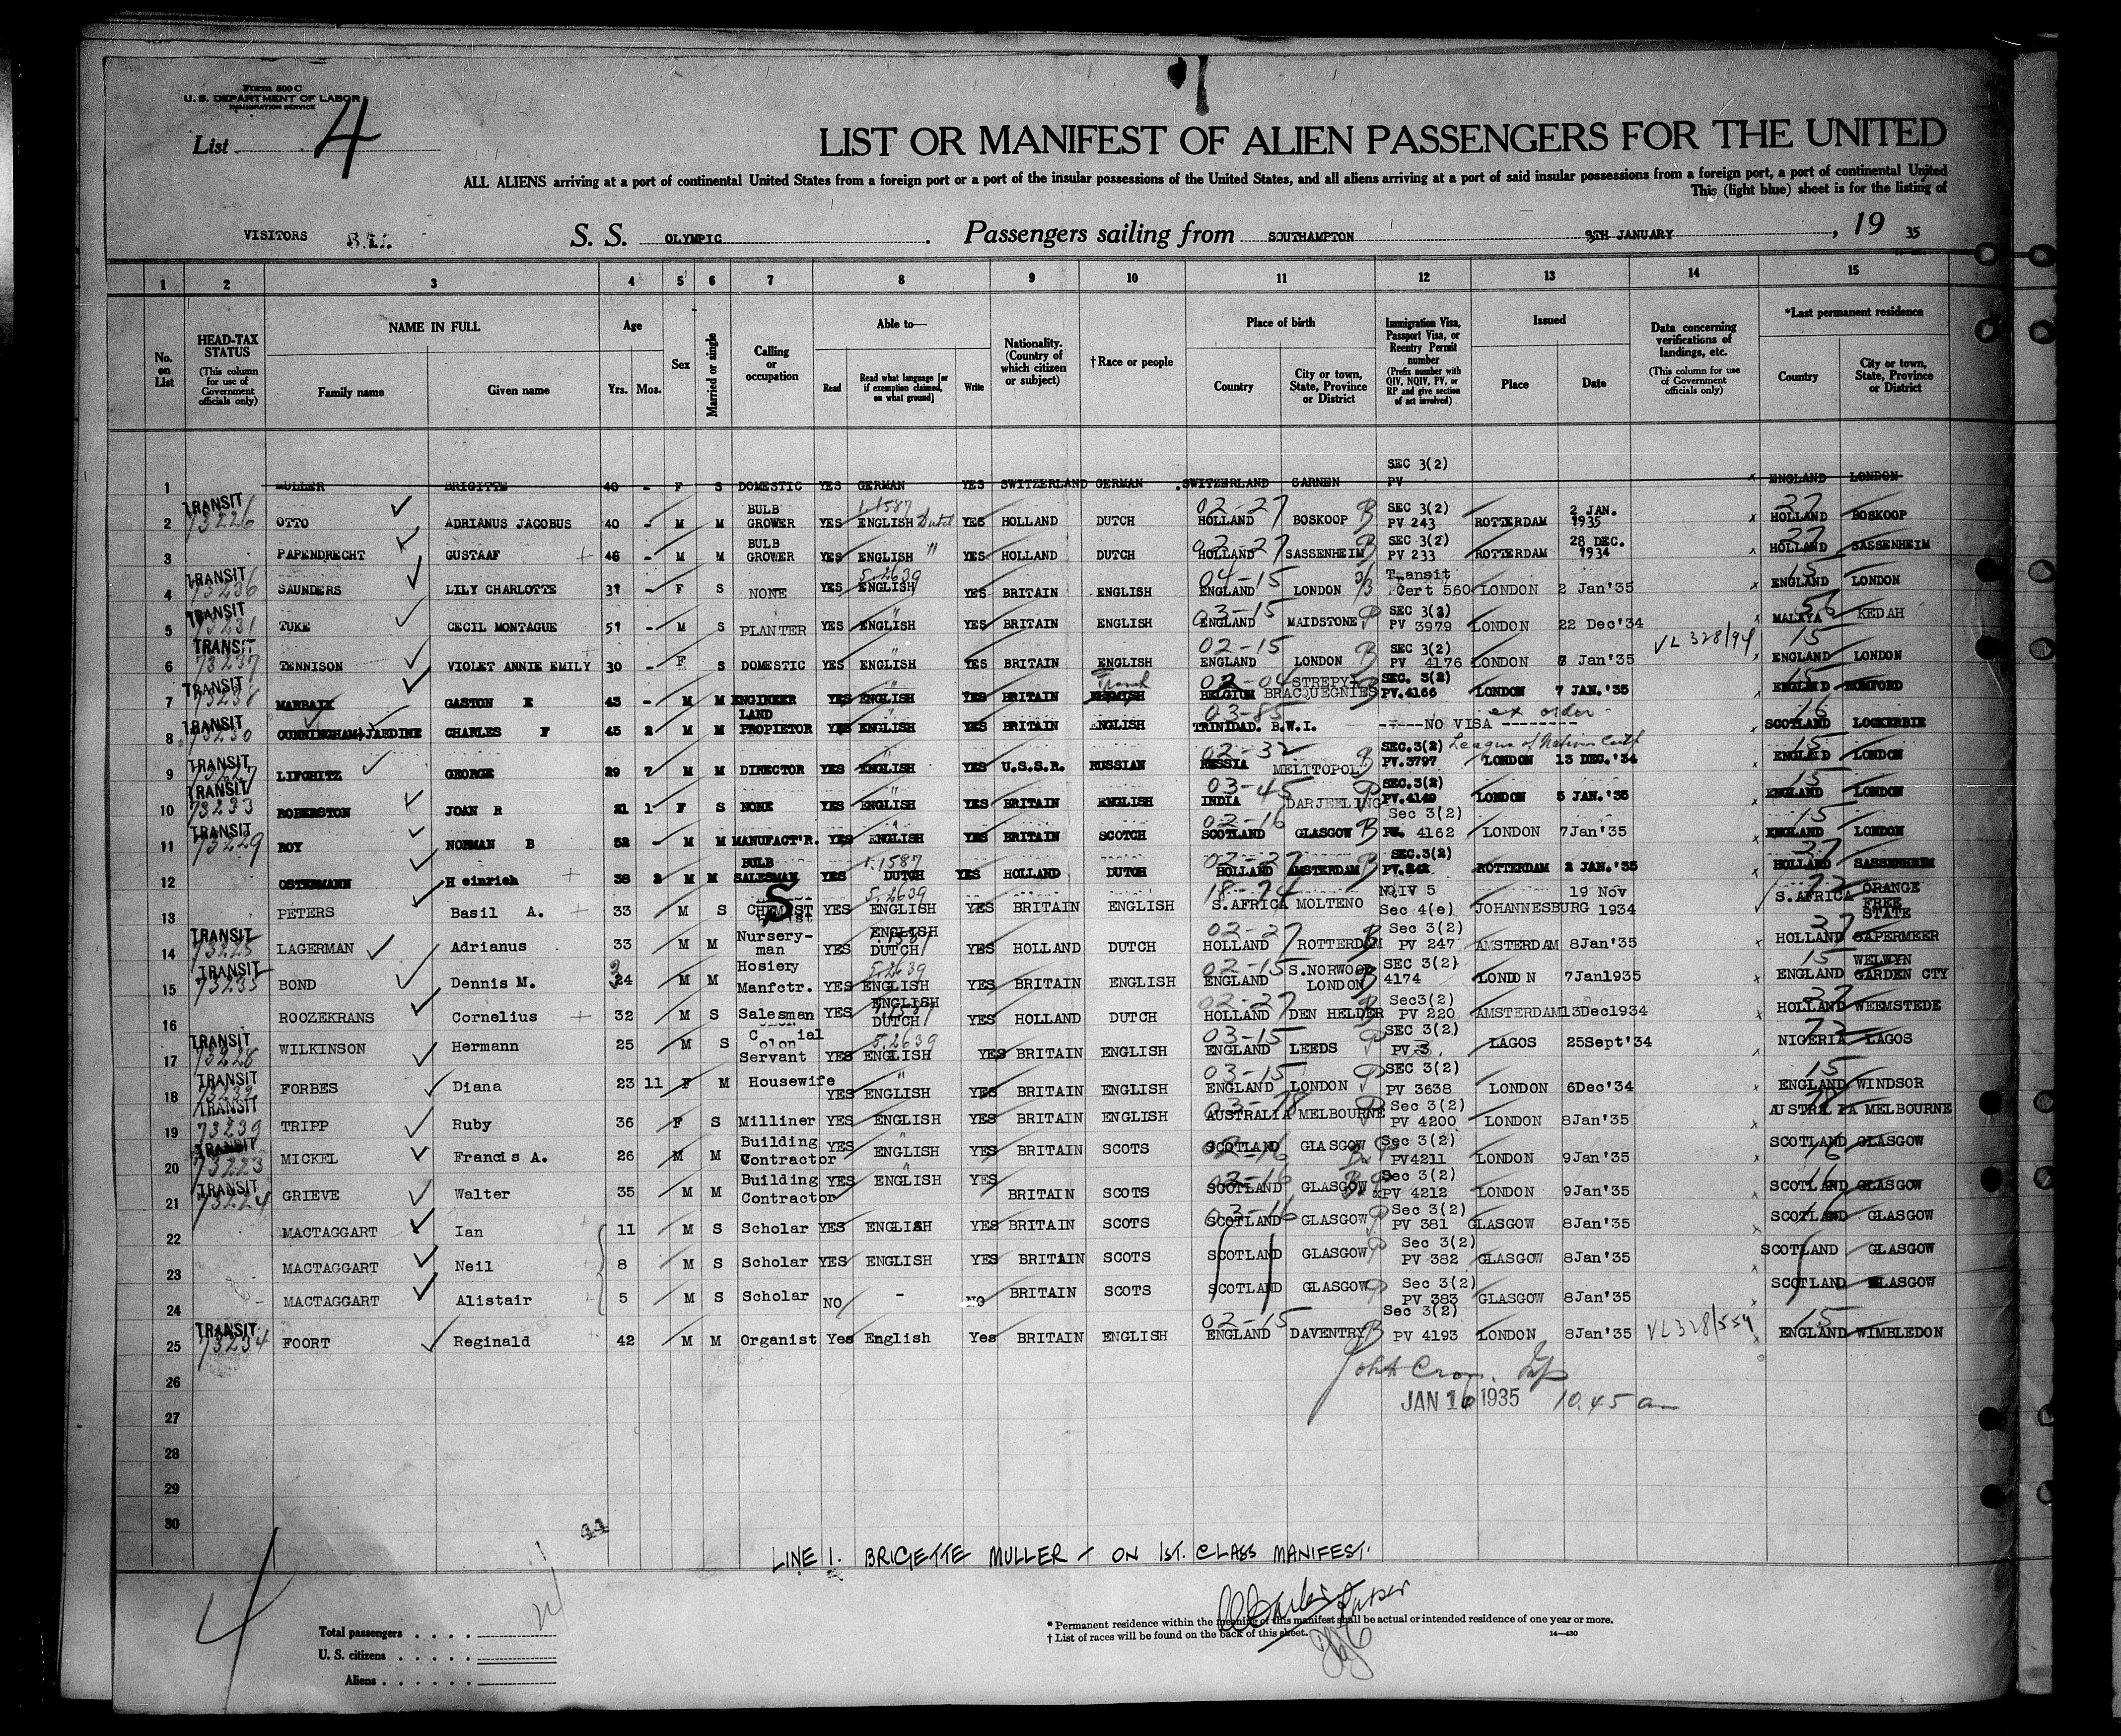 Form 500 C
U. S. DEPARTMENT OF LABOR
IMMIGRATION SERVICE
List 4
LIST OR MANIFEST OF ALIEN PASSENGERS FOR THE UNITED
ALL ALIENS arriving at a port of continental United States from a foreign port or a port of the insular possessions of the United States, and all aliens arriving at a port of said insular possessions from a foreign port, a port of continental United
This (light blue) sheet is for the listing of
VISITORS S. S. OLYMPIC Passengers sailing from SOUTHAMPTON 9TH JANUARY , 19 35
1 2 3 4 5 6 7 8 9 10 11 12 13 14 15
No. on List
HEAD-TAX STATUS (This column for use of Government officials only)
NAME IN FULL Family name Given name
Age Yrs. Mos.
Sex
Married or single
Calling or occupation
Able to— Read Read what language [or if exemption claimed, on what ground] Write
Nationality. (Country of which citizen or subject)
†Race or people
Place of birth Country City or town, State, Province or District
Immigration Visa, Passport Visa, or Reentry Permit number (Prefix number with QIV, NQIV, PV, or RP and give section of act involved)
Issued Place Date
Data concerning verifications of landings, etc. (This column for use of Government officials only)
*Last permanent residence Country City or town, State, Province or District
1 MULLER BRIGITTE 40 - F S DOMESTIC YES GERMAN YES SWITZERLAND GERMAN SWITZERLAND SARNEN SEC 3(2) PV x ENGLAND LONDON
2 TRANSIT 73226 OTTO ADRIANUS JACOBUS 40 - M M BULB GROWER YES 1.1587 ENGLISH Dutch YES HOLLAND DUTCH 02-27 HOLLAND BOSKOOP B SEC 3(2) PV 243 ROTTERDAM 2 JAN. 1935 x 37 HOLLAND BOSKOOP
3 PAPENDRECHT GUSTAAF + 46 - M M BULB GROWER YES ENGLISH " YES HOLLAND DUTCH 02-27 HOLLAND SASSENHEIM B SEC 3(2) PV 233 ROTTERDAM 28 DEC. 1934 x 37 HOLLAND SASSENHEIM
4 TRANSIT 73236 SAUNDERS LILY CHARLOTTE 37 - F S NONE YES 5.2639 ENGLISH YES BRITAIN ENGLISH 04-15 ENGLAND LONDON Transit Cert 560 LONDON 2 Jan'35 x 15 ENGLAND LONDON
5 TRANSIT 73231 TUKE CECIL MONTAGUE 57 - M S PLANTER YES " ENGLISH YES BRITAIN ENGLISH 03-15 ENGLAND MAIDSTONE P SEC 3(2) PV 3979 LONDON 22 Dec'34 x 56 MALAYA KEDAH
6 TRANSIT 73237 TENNISON VIOLET ANNIE EMILY 30 - F S DOMESTIC YES " ENGLISH YES BRITAIN ENGLISH 02-15 ENGLAND LONDON B SEC 3(2) PV 4176 LONDON 8 Jan'35 VL 328/94 x 15 ENGLAND LONDON
7 TRANSIT 73238 MARBAIX GASTON E 43 - M M ENGINEER YES " ENGLISH YES BRITAIN French 02-04 BELGIUM STREPY BRACQUEGNIES B SEC. 3(2) PV.4166 LONDON 7 JAN.'35 15 ENGLAND ROMFORD
8 TRANSIT 73230 CUNNINGHAM JARDINE CHARLES F 45 2 M M LAND PROPIETOR YES " ENGLISH YES BRITAIN ENGLISH 03-85 TRINIDAD. B.W.I. -----NO VISA -------- ex order x 16 SCOTLAND LOCKERBIE
9 TRANSIT 73227 LIFCHITZ GEORGE 29 7 M M DIRECTOR YES " ENGLISH YES U.S.S.R. RUSSIAN 02-32 RUSSIA MELITOPOL B SEC.3(2) League of Nations Certf PV.3797 LONDON 13 DEC.'34 x 15 ENGLAND LONDON
10 TRANSIT 73233 ROBERSTON JOAN R 21 1 F S NONE YES " ENGLISH YES BRITAIN ENGLISH 03-45 INDIA DARJEELING P SEC.3(2) PV.4149 LONDON 5 JAN.'35 15 ENGLAND LONDON
11 TRANSIT 73229 ROY NORMAN B 52 - M M MANUFACT'R. YES " ENGLISH YES BRITAIN SCOTCH 02-16 SCOTLAND GLASGOW B Sec 3(2) PV. 4162 LONDON 7Jan'35 x 15 ENGLAND LONDON
12 OSTERMANN Heinrich + 38 2 M M BULB SALESMAN YES 1.1587 DUTCH YES HOLLAND DUTCH 02-27 HOLLAND AMSTERDAM B SEC.3(2) PV.242 ROTTERDAM 2 JAN.'35 x 37 HOLLAND SASSENHEIM
13 PETERS Basil A. + 33 M S CHEMIST S YES 5.2639 ENGLISH YES BRITAIN ENGLISH 18-74 S.AFRICA MOLTENO NQIV 5 Sec 4(e) JOHANNESBURG 19 Nov 1934 72 S.AFRICA ORANGE FREE STATE
14 TRANSIT 73225 LAGERMAN Adrianus 33 M M Nursery-man YES ENGLISH DUTCH YES HOLLAND DUTCH 02-27 HOLLAND ROTTERDAM B Sec 3(2) PV 247 AMSTERDAM 8Jan'35 x 37 HOLLAND SAPERMEER
15 TRANSIT 73235 BOND Dennis M. 34 M M Hosiery Manfctr. YES 5.2639 ENGLISH YES BRITAIN ENGLISH 02-15 ENGLAND S.NORWOOD LONDON B SEC 3(2) 4174 LONDON 7Jan1935 x 15 ENGLAND WELWYN GARDEN CTY
16 ROOZEKRANS Cornelius + 32 M S Salesman YES ENGLISH DUTCH YES HOLLAND DUTCH 02-27 HOLLAND DEN HELDER B Sec3(2) PV 220 AMSTERDAM 13Dec1934 x 37 HOLLAND WEEMSTEDE
17 TRANSIT 73228 WILKINSON Hermann 25 M S Colonial Servant YES 5.2639 ENGLISH YES BRITAIN ENGLISH 03-15 ENGLAND LEEDS P SEC 3(2) PV 3. LAGOS 25Sept'34 x 72 NIGERIA LAGOS
18 TRANSIT 73232 FORBES Diana 23 11 F M Housewife YES " ENGLISH YES BRITAIN ENGLISH 03-15 ENGLAND LONDON P SEC 3(2) PV 3638 LONDON 6Dec'34 x 15 ENGLAND WINDSOR
19 TRANSIT 73239 TRIPP Ruby 36 F S Milliner YES ENGLISH YES BRITAIN ENGLISH 03-78 AUSTRALIA MELBOURNE P Sec 3(2) PV 4200 LONDON 8Jan'35 x 78 AUSTRALIA MELBOURNE
20 TRANSIT 73223 MICKEL Francis A. 26 M M Building Contractor YES " ENGLISH YES BRITAIN SCOTS 02-16 SCOTLAND GLASGOW Sec 3(2) PV4211 LONDON 9Jan'35 16 SCOTLAND GLASGOW
21 TRANSIT 73224 GRIEVE Walter 35 M M Building Contractor YES " ENGLISH YES BRITAIN SCOTS 02-16 SCOTLAND GLASGOW Sec 3(2) PV 4212 LONDON 9Jan'35 16 SCOTLAND GLASGOW
22 MACTAGGART Ian 11 M S Scholar YES ENGLISH YES BRITAIN SCOTS 03-16 SCOTLAND GLASGOW P Sec 3(2) PV 381 GLASGOW 8Jan'35 x 16 SCOTLAND GLASGOW
23 MACTAGGART Neil 8 M S Scholar YES ENGLISH YES BRITAIN SCOTS SCOTLAND GLASGOW P Sec 3(2) PV 382 GLASGOW 8Jan'35 x SCOTLAND GLASGOW
24 MACTAGGART Alistair 5 M S Scholar NO - NO BRITAIN SCOTS SCOTLAND GLASGOW P Sec 3(2) PV 383 GLASGOW 8Jan'35 x SCOTLAND GLASGOW
25 TRANSIT 73234 FOORT Reginald 42 M M Organist Yes English Yes BRITAIN ENGLISH 02-15 ENGLAND DAVENTRY B Sec 3(2) PV 4193 LONDON 8Jan'35 VL328/554 x 15 ENGLAND WIMBLEDON
26
JAN 16 1935 10.45 am
27
28
29
30
44
LINE 1. BRIGETTE MULLER - ON 1ST. CLASS MANIFEST.
4
Total passengers . . . .
U. S. citizens . . . . .
Aliens . . . . . .
* Permanent residence within the meaning of this manifest shall be actual or intended residence of one year or more.
† List of races will be found on the back of this sheet.
14—430